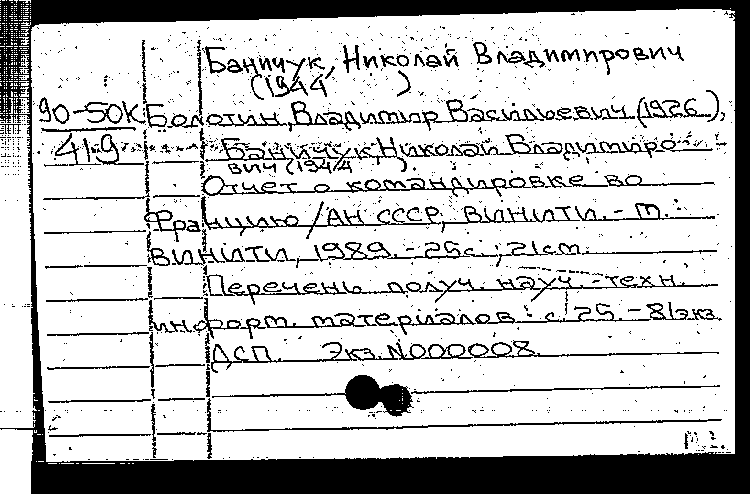 Баничук, Николай Владимирович
(1944 )
90-50К Болотин, Владимир Васильевич (1926 ),
419 Баничук, Николай Владимиро-
вич (1944 ).
Отчет о командировке во
Францию / АН СССР, ВИНИТИ. - М.:
ВИНИТИ, 1989. - 25с.; 21см.
Перечень получ. науч.-техн.
информ. материалов: с. 25. - 8 экз.
ДСП. Экз. N000008.